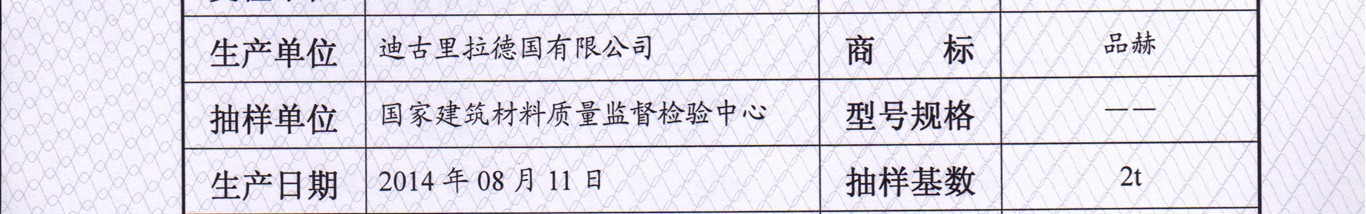 生产单位 迪古里拉德国有限公司 商 标 品赫
抽样单位 国家建筑材料质量监督检验中心 型号规格 ——
生产日期 2014 年 08 月 11 日 抽样基数 2t